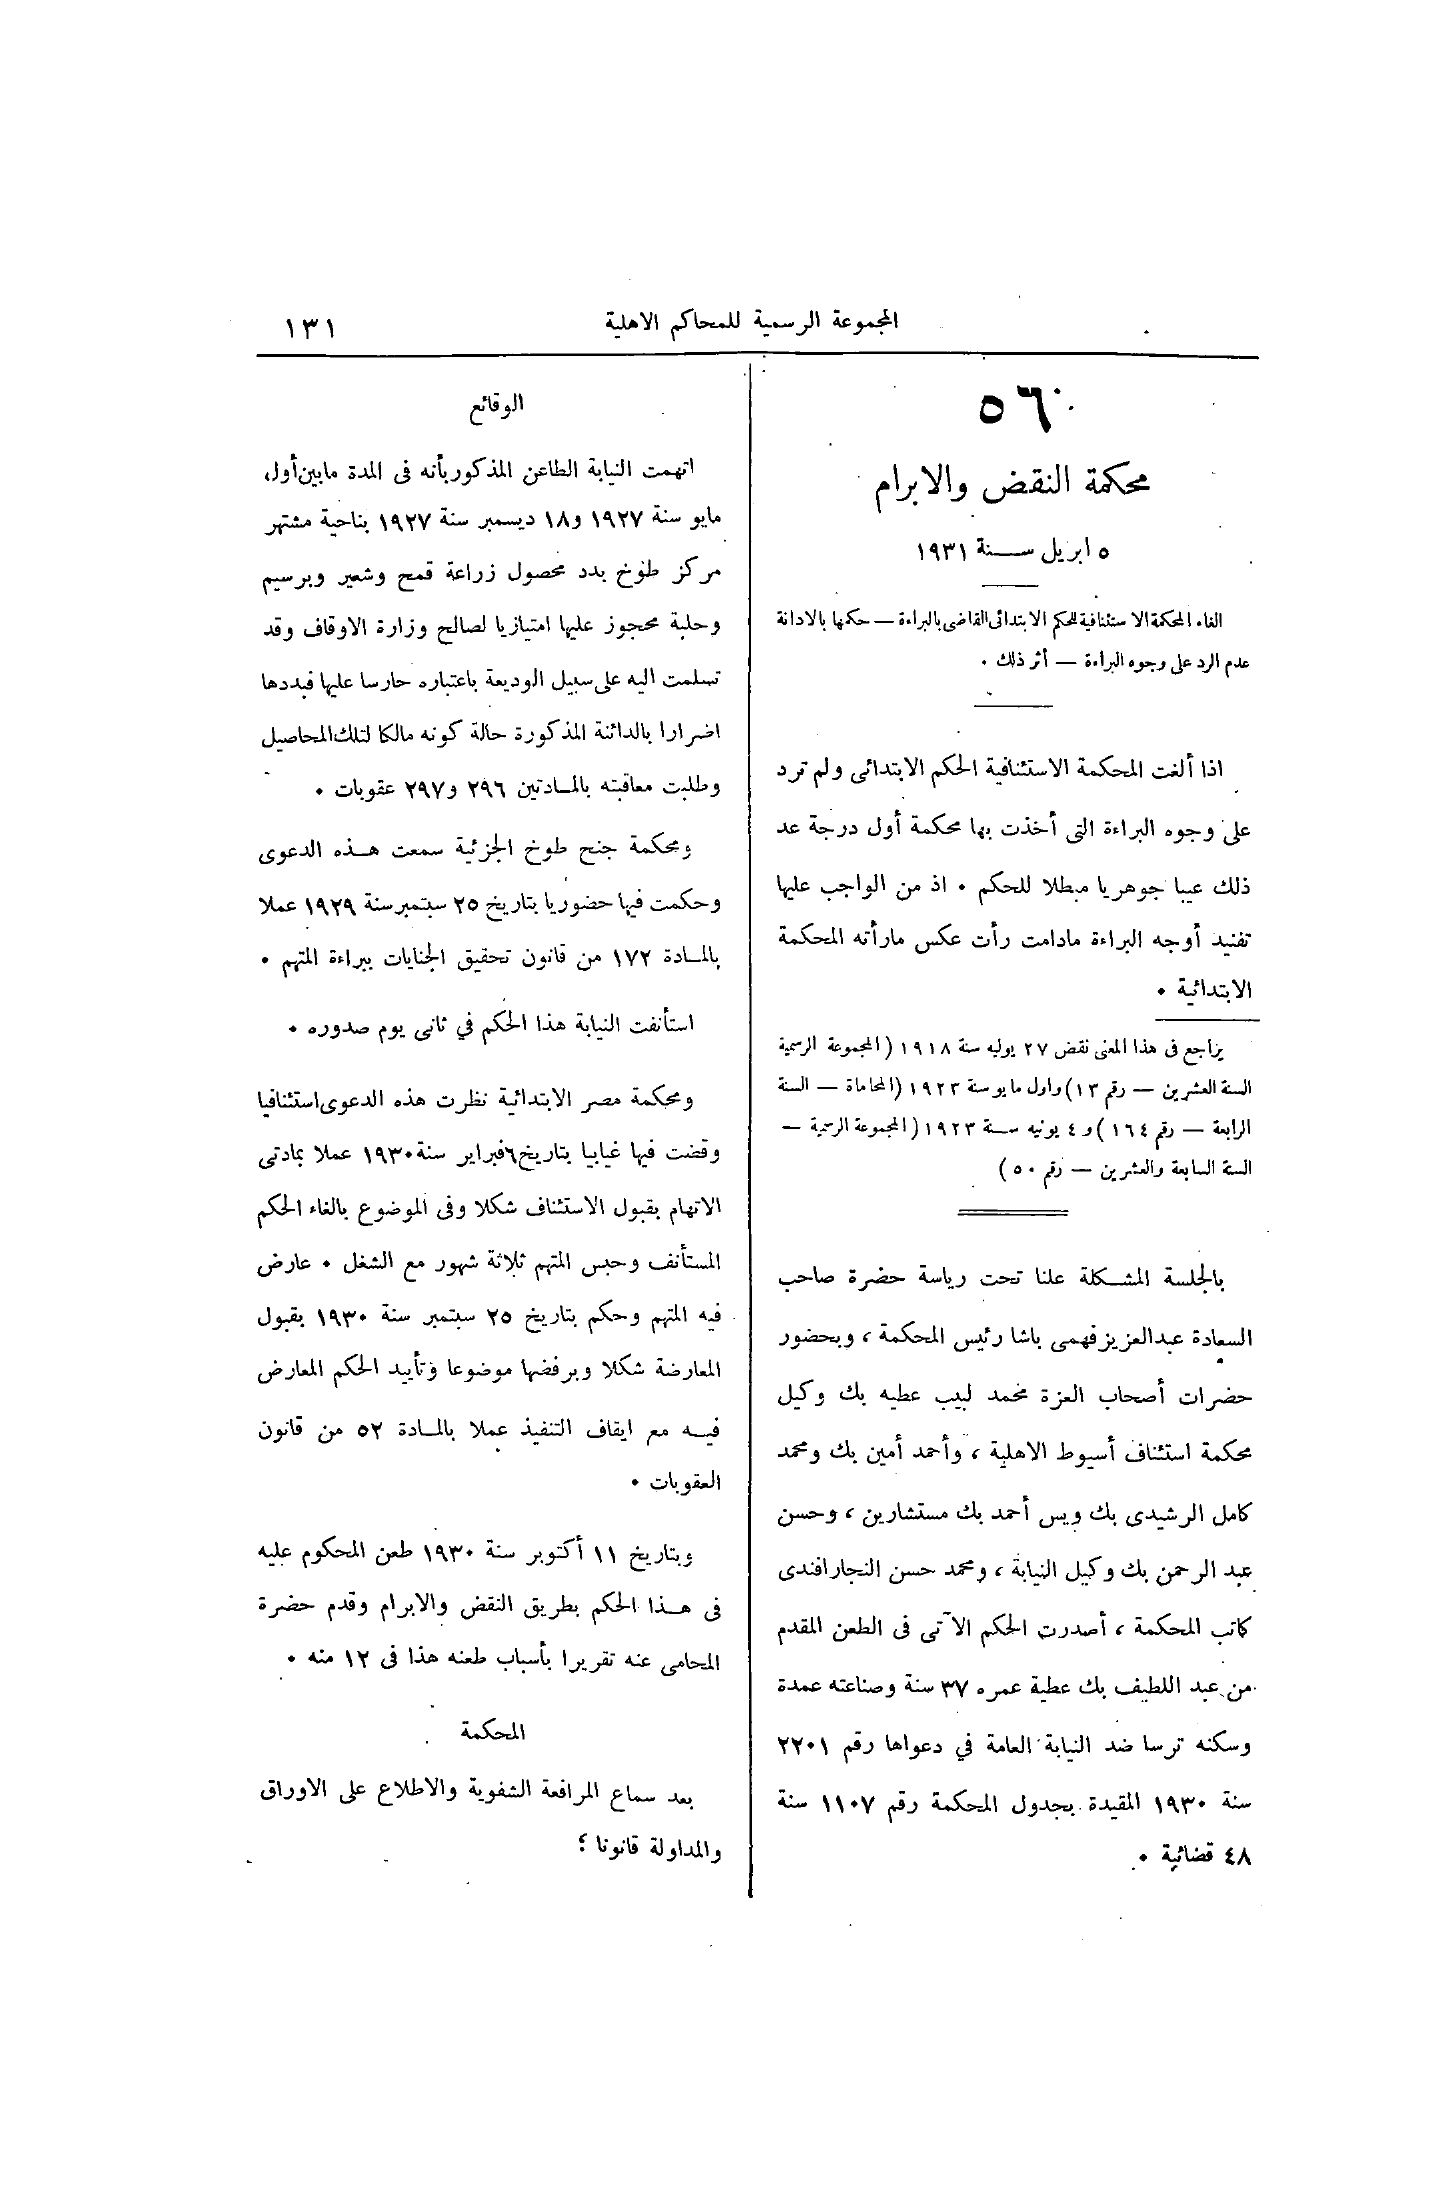 المجموعة الرسمية للمحاكم الاهلية
١٣١
٥٦
محكمة النقض والابرام
٥ ابريل سنة ١٩٣١
الغاء المحكمة الاستئنافية للحكم الابتدائى القاضى بالبراءة — حكمها بالادانة
عدم الرد على وجوه البراءة — أثر ذلك .
اذا ألغت المحكمة الاستئنافية الحكم الابتدائى ولم ترد
على وجوه البراءة التى أخذت بها محكمة أول درجة عد
ذلك عيبا جوهريا مبطلا للحكم . اذ من الواجب عليها
تفنيد أوجه البراءة مادامت رأت عكس مارأته المحكمة
الابتدائية .
يراجع فى هذا المعنى نقض ٢٧ يوليه سنة ١٩١٨ (المجموعة الرسمية
السنة العشرين — رقم ١٣) واول مايو سنة ١٩٢٣ (المحاماة — السنة
الرابعة — رقم ١٦٤) و ٤ يونيه سنة ١٩٢٣ (المجموعة الرسمية —
السنة السابعة والعشرين — رقم ٥٠)
بالجلسة المشكلة علنا تحت رياسة حضرة صاحب
السعادة عبدالعزيز فهمى باشا رئيس المحكمة ، وبحضور
حضرات أصحاب العزة محمد لبيب عطيه بك وكيل
محكمة استئناف أسيوط الاهلية ، وأحمد أمين بك ومحمد
كامل الرشيدى بك ويس أحمد بك مستشارين ، وحسن
عبد الرحمن بك وكيل النيابة ، ومحمد حسن النجار افندى
كاتب المحكمة ، أصدرت الحكم الآتى فى الطعن المقدم
من عبد اللطيف بك عطية عمره ٣٧ سنة وصناعته عمدة
وسكنه ترسا ضد النيابة العامة في دعواها رقم ٢٢٠١
سنة ١٩٣٠ المقيدة بجدول المحكمة رقم ١١٠٧ سنة
٤٨ قضائية .
الوقائع
اتهمت النيابة الطاعن المذكور بأنه فى المدة مابين أول
مايو سنة ١٩٢٧ و١٨ ديسمبر سنة ١٩٢٧ بناحية مشتهر
مركز طوخ بدد محصول زراعة قمح وشعير وبرسيم
وحلبة محجوز عليها امتيازيا لصالح وزارة الاوقاف وقد
تسلمت اليه على سبيل الوديعة باعتباره حارسا عليها فبددها
اضرارا بالدائنة المذكورة حالة كونه مالكا لتلك المحاصيل
وطلبت معاقبته بالمادتين ٢٩٦ و٢٩٧ عقوبات .
ومحكمة جنح طوخ الجزئية سمعت هذه الدعوى
وحكمت فيها حضوريا بتاريخ ٢٥ سبتمبر سنة ١٩٢٩ عملا
بالمادة ١٧٢ من قانون تحقيق الجنايات ببراءة المتهم .
استأنفت النيابة هذا الحكم في ثانى يوم صدوره .
ومحكمة مصر الابتدائية نظرت هذه الدعوى استئنافيا
وقضت فيها غيابيا بتاريخ ٦ فبراير سنة ١٩٣٠ عملا بمادتى
الاتهام بقبول الاستئناف شكلا وفى الموضوع بالغاء الحكم
المستأنف وحبس المتهم ثلاثة شهور مع الشغل . عارض
فيه المتهم وحكم بتاريخ ٢٥ سبتمبر سنة ١٩٣٠ بقبول
المعارضة شكلا وبرفضها موضوعا وتأييد الحكم المعارض
فيه مع ايقاف التنفيذ عملا بالمادة ٥٢ من قانون
العقوبات .
وبتاريخ ١١ أكتوبر سنة ١٩٣٠ طعن المحكوم عليه
فى هذا الحكم بطريق النقض والابرام وقدم حضرة
المحامى عنه تقريرا بأسباب طعنه هذا فى ١٢ منه .
المحكمة
بعد سماع المرافعة الشفوية والاطلاع على الاوراق
والمداولة قانونا ؛